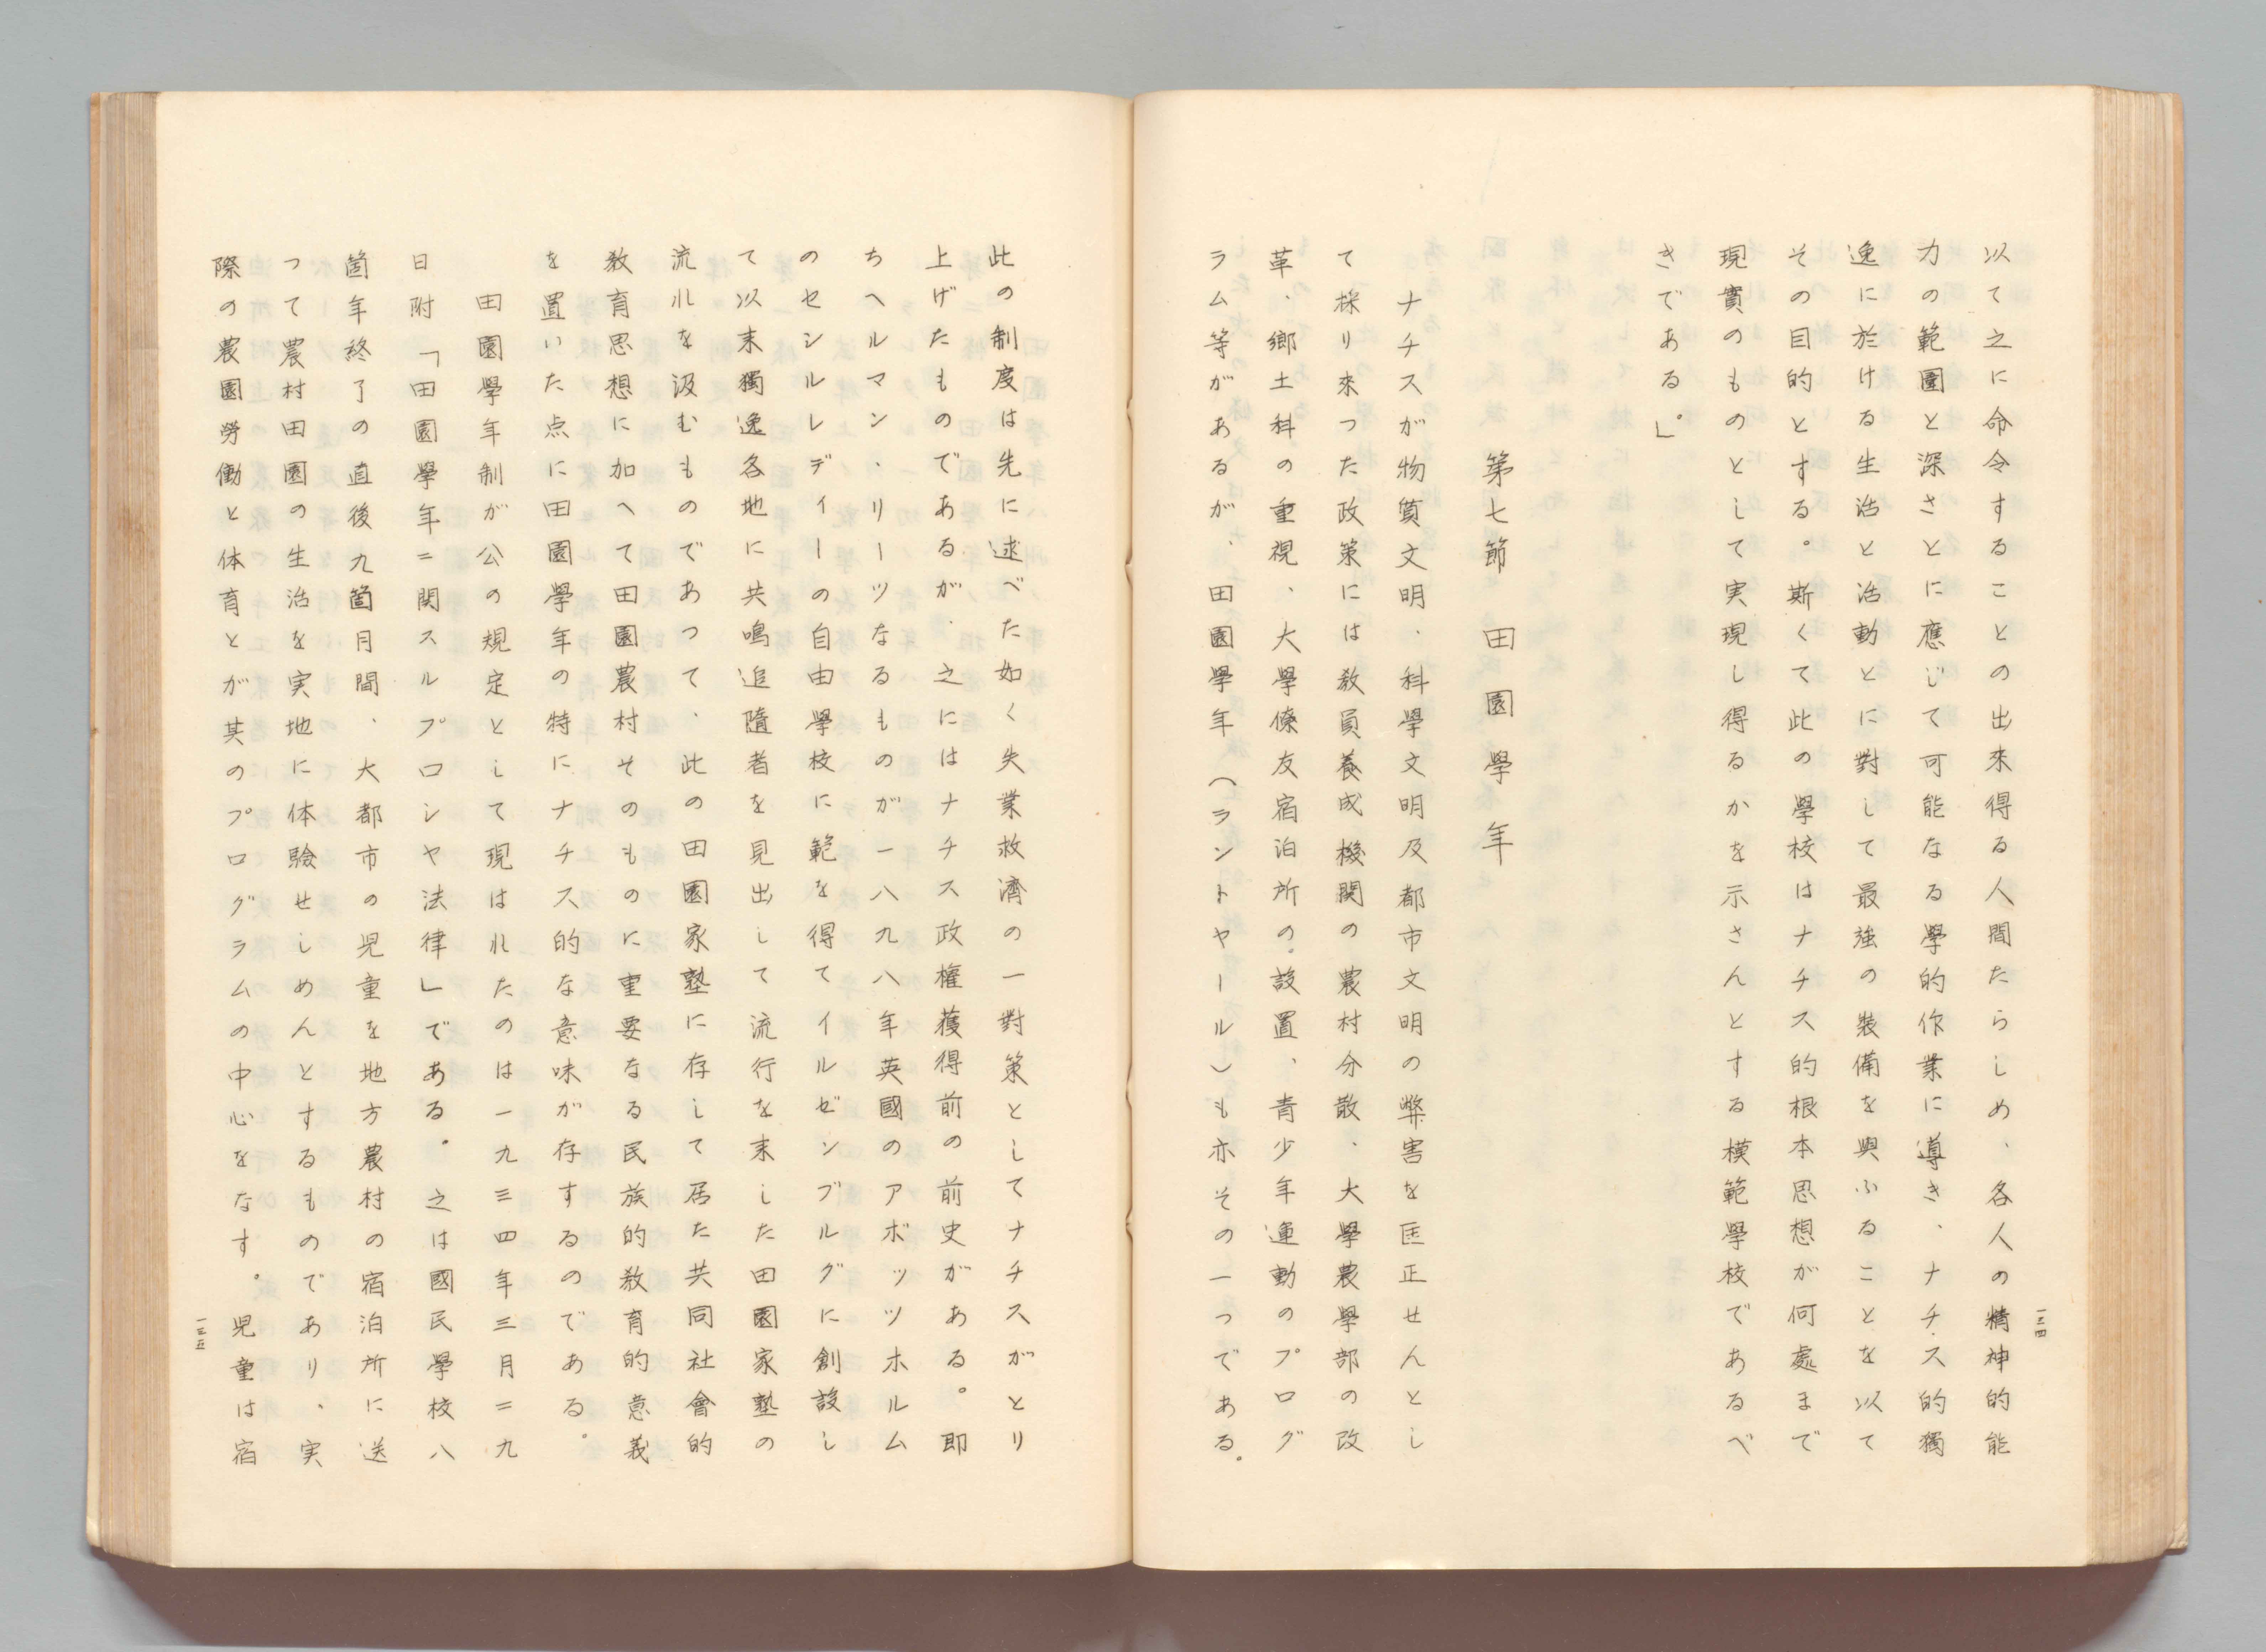 以て之に命令することの出來得る人間たらしめ、各人の精神的能
力の範圍と深さとに應じて可能なる學的作業に導き、ナチス的獨
逸に於ける生活と活動とに對して最強の裝備を與ふることを以て
その目的とする。斯くて此の學校はナチス的根本思想が何處まで
現實のものとして実現し得るかを示さんとする模範學校であるべ
きである。」
第七節　田園學年
ナチスが物質文明、科學文明及都市文明の弊害を匡正せんとし
て採り來つた政策には敎員養成機関の農村分散、大學農學部の改
革、鄉土科の重視、大學傣友宿泊所の設置、青少年運動のプログ
ラム等があるが、田園學年（ラントヤール）も亦その一つである。
一三四
此の制度は先に逑べた如く失業救濟の一對策としてナチスがとり
上げたものであるが、之にはナチス政權獲得前の前史がある。即
ちヘルマン、リーツなるものが一八九八年英國のアボッツホルム
のセシルレディーの自由學校に範を得てイルゼンブルグに創設し
て以来獨逸各地に共鳴追隨者を見出して流行を来した田園家塾の
流れを汲むものであつて、此の田園家塾に存して居た共同社會的
敎育思想に加へて田園農村そのものに重要なる民族的敎育的意義
を置いた点に田園學年の特にナチス的な意味が存するのである。
田園學年制が公の規定として現はれたのは一九三四年三月二九
日附「田園學年ニ関スルプロシヤ法律」である。之は國民學校八
箇年終了の直後九箇月間、大都市の児童を地方農村の宿泊所に送
つて農村田園の生活を実地に体驗せしめんとするものであり、実
際の農園勞働と体育とが其のプログラムの中心をなす。児童は宿
一三五